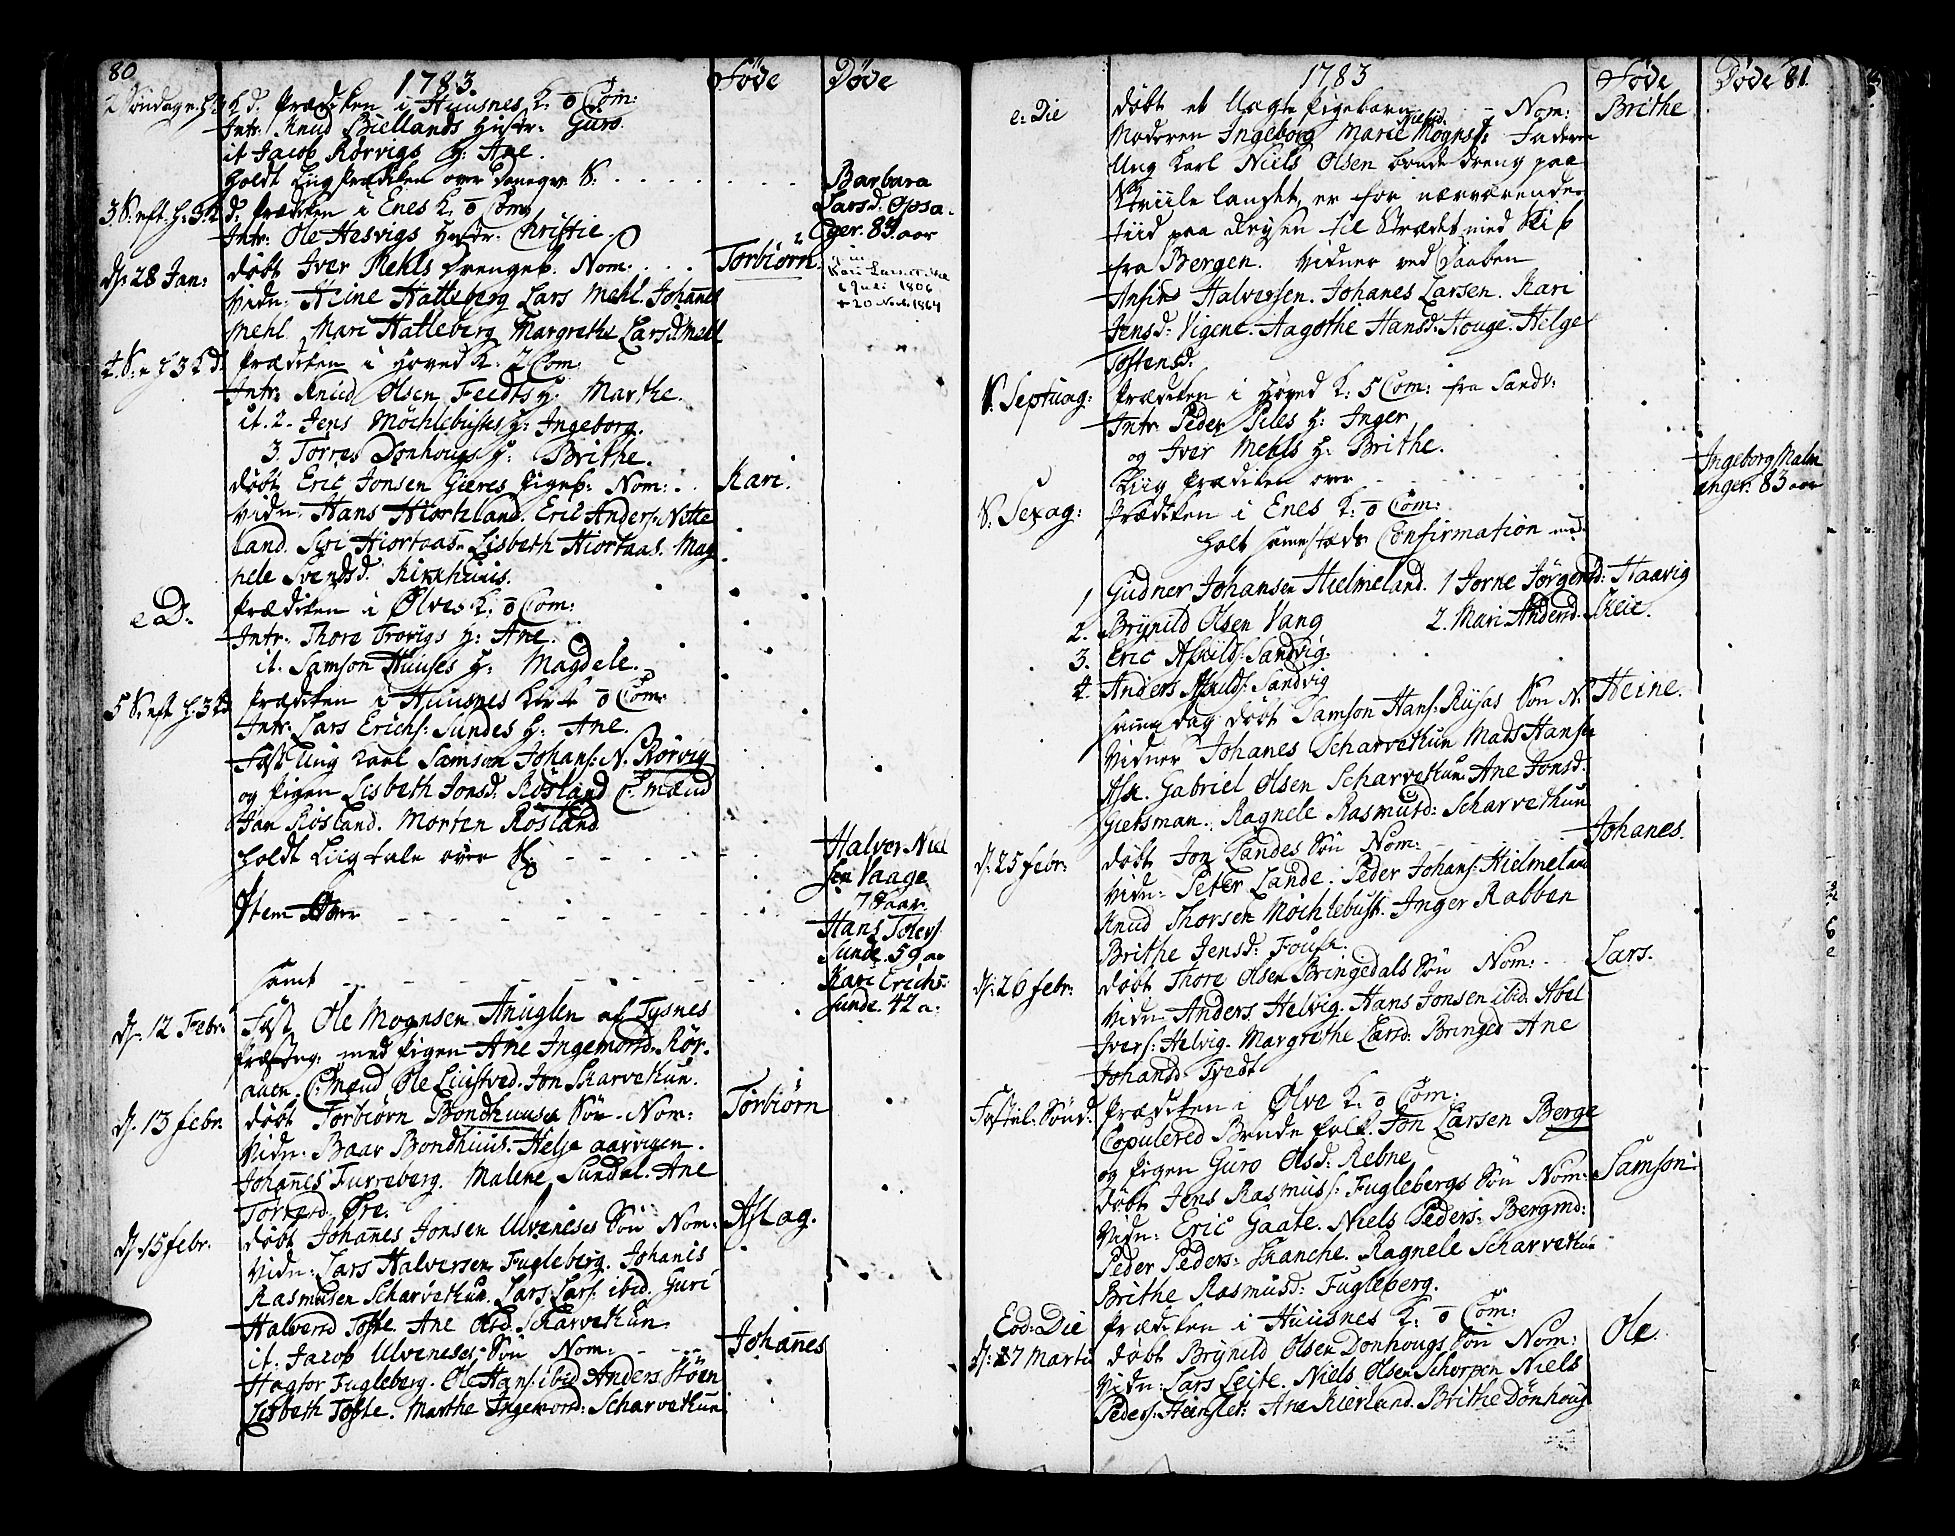 80
1783.
Föde
Døde
2 Søndag e: H 3 K d. Prædiken i Huusnes K. ō Com:
Intr: Knud Biellands Hustr: Guro.
it Jacob Rørvigs H: Ane.
Holdt Liigprædiken over
Barbara
Larsd. Opsa-
ger. 89 aar
3 S: eft. H: 3 K d. Prædiken i Enes K. ō Com:
Intr: Ole Hesvigs Hustr: Christie.
d: 28 Jan: døbt Iver Mehls Drengeb. Nom: . . . Torbiørn.
Vidn: Heine Hatteberg Lars Mehl. Johanes
Mehl. Mari Hatleberg. Margrethe Larsd. Mehl
6 Juli 1806
+ 20 Nov. 1864
4. S. e H 3 K d. Prædiken i Hoved K. 2 Com.
Intr: Knud Olsen Feedts H: Marthe.
it. 2. Jens Möchlebustes H: Ingeborg.
3. Torres Donhougs H: Brithe.
døbt Eric Jonsen Gieres Pigeb: Nom: . . Kari.
Vidn: Hans Hiortland. Eric Anders: Nette
land. Siri Hiortaas. Lisbeth Hiortaas. Mag
hele Svendsd. Kirkhuus.
e D: Prædiken i Ølves K. ō Com:
Intr: Thore Trovigs H: Ane.
it. Samson Huuses H: Magdele.
5 S: eft H. 3 K d. Prædiken i Huusnes Kirke ō Com:
Intr: Lars Erichs: Sundes H: Ane.
Fæst Ung Karl Samson Johans: N. Rørvig
og Pigen Lisbeth Jonsd: Røsland C mænd
Jan Røsland. Morten Røsland
Holdt Liigtale over
Halver Niel
sen Vaage
78 aar
Item over
Hans Tolers
Sunde. 59 aa
samt
Kari Erichs:
Sunde. 42 a:
d. 12 Febr: Fæst Ole Mognsen Anuglen af Tysnes
Præsteg: med Pigen Ane Ingemond: Rør-
aaen. C: Mænd Ole Liustved. Jon Skarvekun.
d. 13 febr. døbt Torbiørn Bondhuuses Søn - Nom: Torbiørn
Vidn: Baar Bondhuus. Helje aarvigen.
Johanes Furreberg. Malene Sundal. Ane
Torkerd: Øre.
d. 15 febr. døbt Johanes Jonsen Ulveneses Søn Nom: Aslag.
Vidn: Lars Halversen Fugleberg. Johanis
Rasmusen Scharvekun. Lars Lars: ibid. Guri
Halverd Tofte. Ane Olsd. Scharvekun
it. Jacob Ulveneses Søn Nom: Johanes
Hagtor Fugleberg. Ole Hans: ibid Anders Støen
Lisbeth Tofte. Marthe Ingemond: Scharvekun
1783
Föde
Døde 81.
e: Die døbt et Uægte Pigebarn - Nom: Brithe
Moderen Ingeborg Marie Mognsd: Faderen
Ung Karl Niels Olsen bonde dreng paa
landet, er for nærværende
tiid paa Reysen til Strædet med Skib
fra Bergen. Vidner ved Daaben
Ansius Halversen. Johanes Larsen. Kari
Jensd: Vigene. Aagothe Hansd: Houge. Helge
Tostensd.
S. Septuag: Prædiken i Hoved K: 5 Com: fra Sands:
Intr Peder Piles H: Inger
og Iver Mehls H: Brithe.
Liig Prædiken over
Ingeborg Malm
anger: 83 aar
S. Sexag: Prædiken i Enes K: ō Com:
Holt sammestæds Confirmation med
1 Gudner Johansen Hielmeland. 1 Jorne Jørgensd: Haavig
2. Brynild Olsen Vang 2. Mari Andersd. Skeie.
3. Eric Askilds: Sandvig.
4. Anders Askilds: Sandvig
samme dag døbt Samson Hans: Riisas Søn N. Heine.
Vidner Johanes Scharvekun Mads Hansen
Ask. Gabriel Olsen Scharvekun. Ane Jonsd.
Giersman. Ragnele Rasmusd: Scharvekun
d: 25 febr: døbt Jon Landes Søn Nom: Johanes.
Vidn: Peter Lande. Peder Johans: Hielmeland
Knud Thorsen Möchlebust. Inger Rabben
Brithe Jensd: Fousk.
d: 26 febr: døbt Thore Olsen Bringedals Søn Nom: Lars.
Vidn: Anders Helvig. Hans Jonsen ibid. Abel
Ivers: Helvig. Margrethe Larsd: Bringed Ane
Johansd Tvedt
Fastel: Sönd. Prædiken i Ølve K. ō Com:
Copulered Brude folk. Jon Larsen Berge
og Pigen Guro Olsd: Rebne
døbt Jens Rasmuss: Fuglebergs Søn Nom: Samson
Vidn: Eric Gaate. Niels Peders: Bergmd:
Peder Peders: Skanche. Ragnele Scharvekun
Brithe Rasmusd: Fugleberg.
Eod: Die Prædiken i Huusnes K. ō Com:
d: 27 Martii døbt Brynild Olsen Donhougs Søn Nom: Ole.
Vidn: Lars Leite. Niels Olsen Schorpen Niels
Peders: Heinslet: Ane Kierland. Brithe Dönhoug